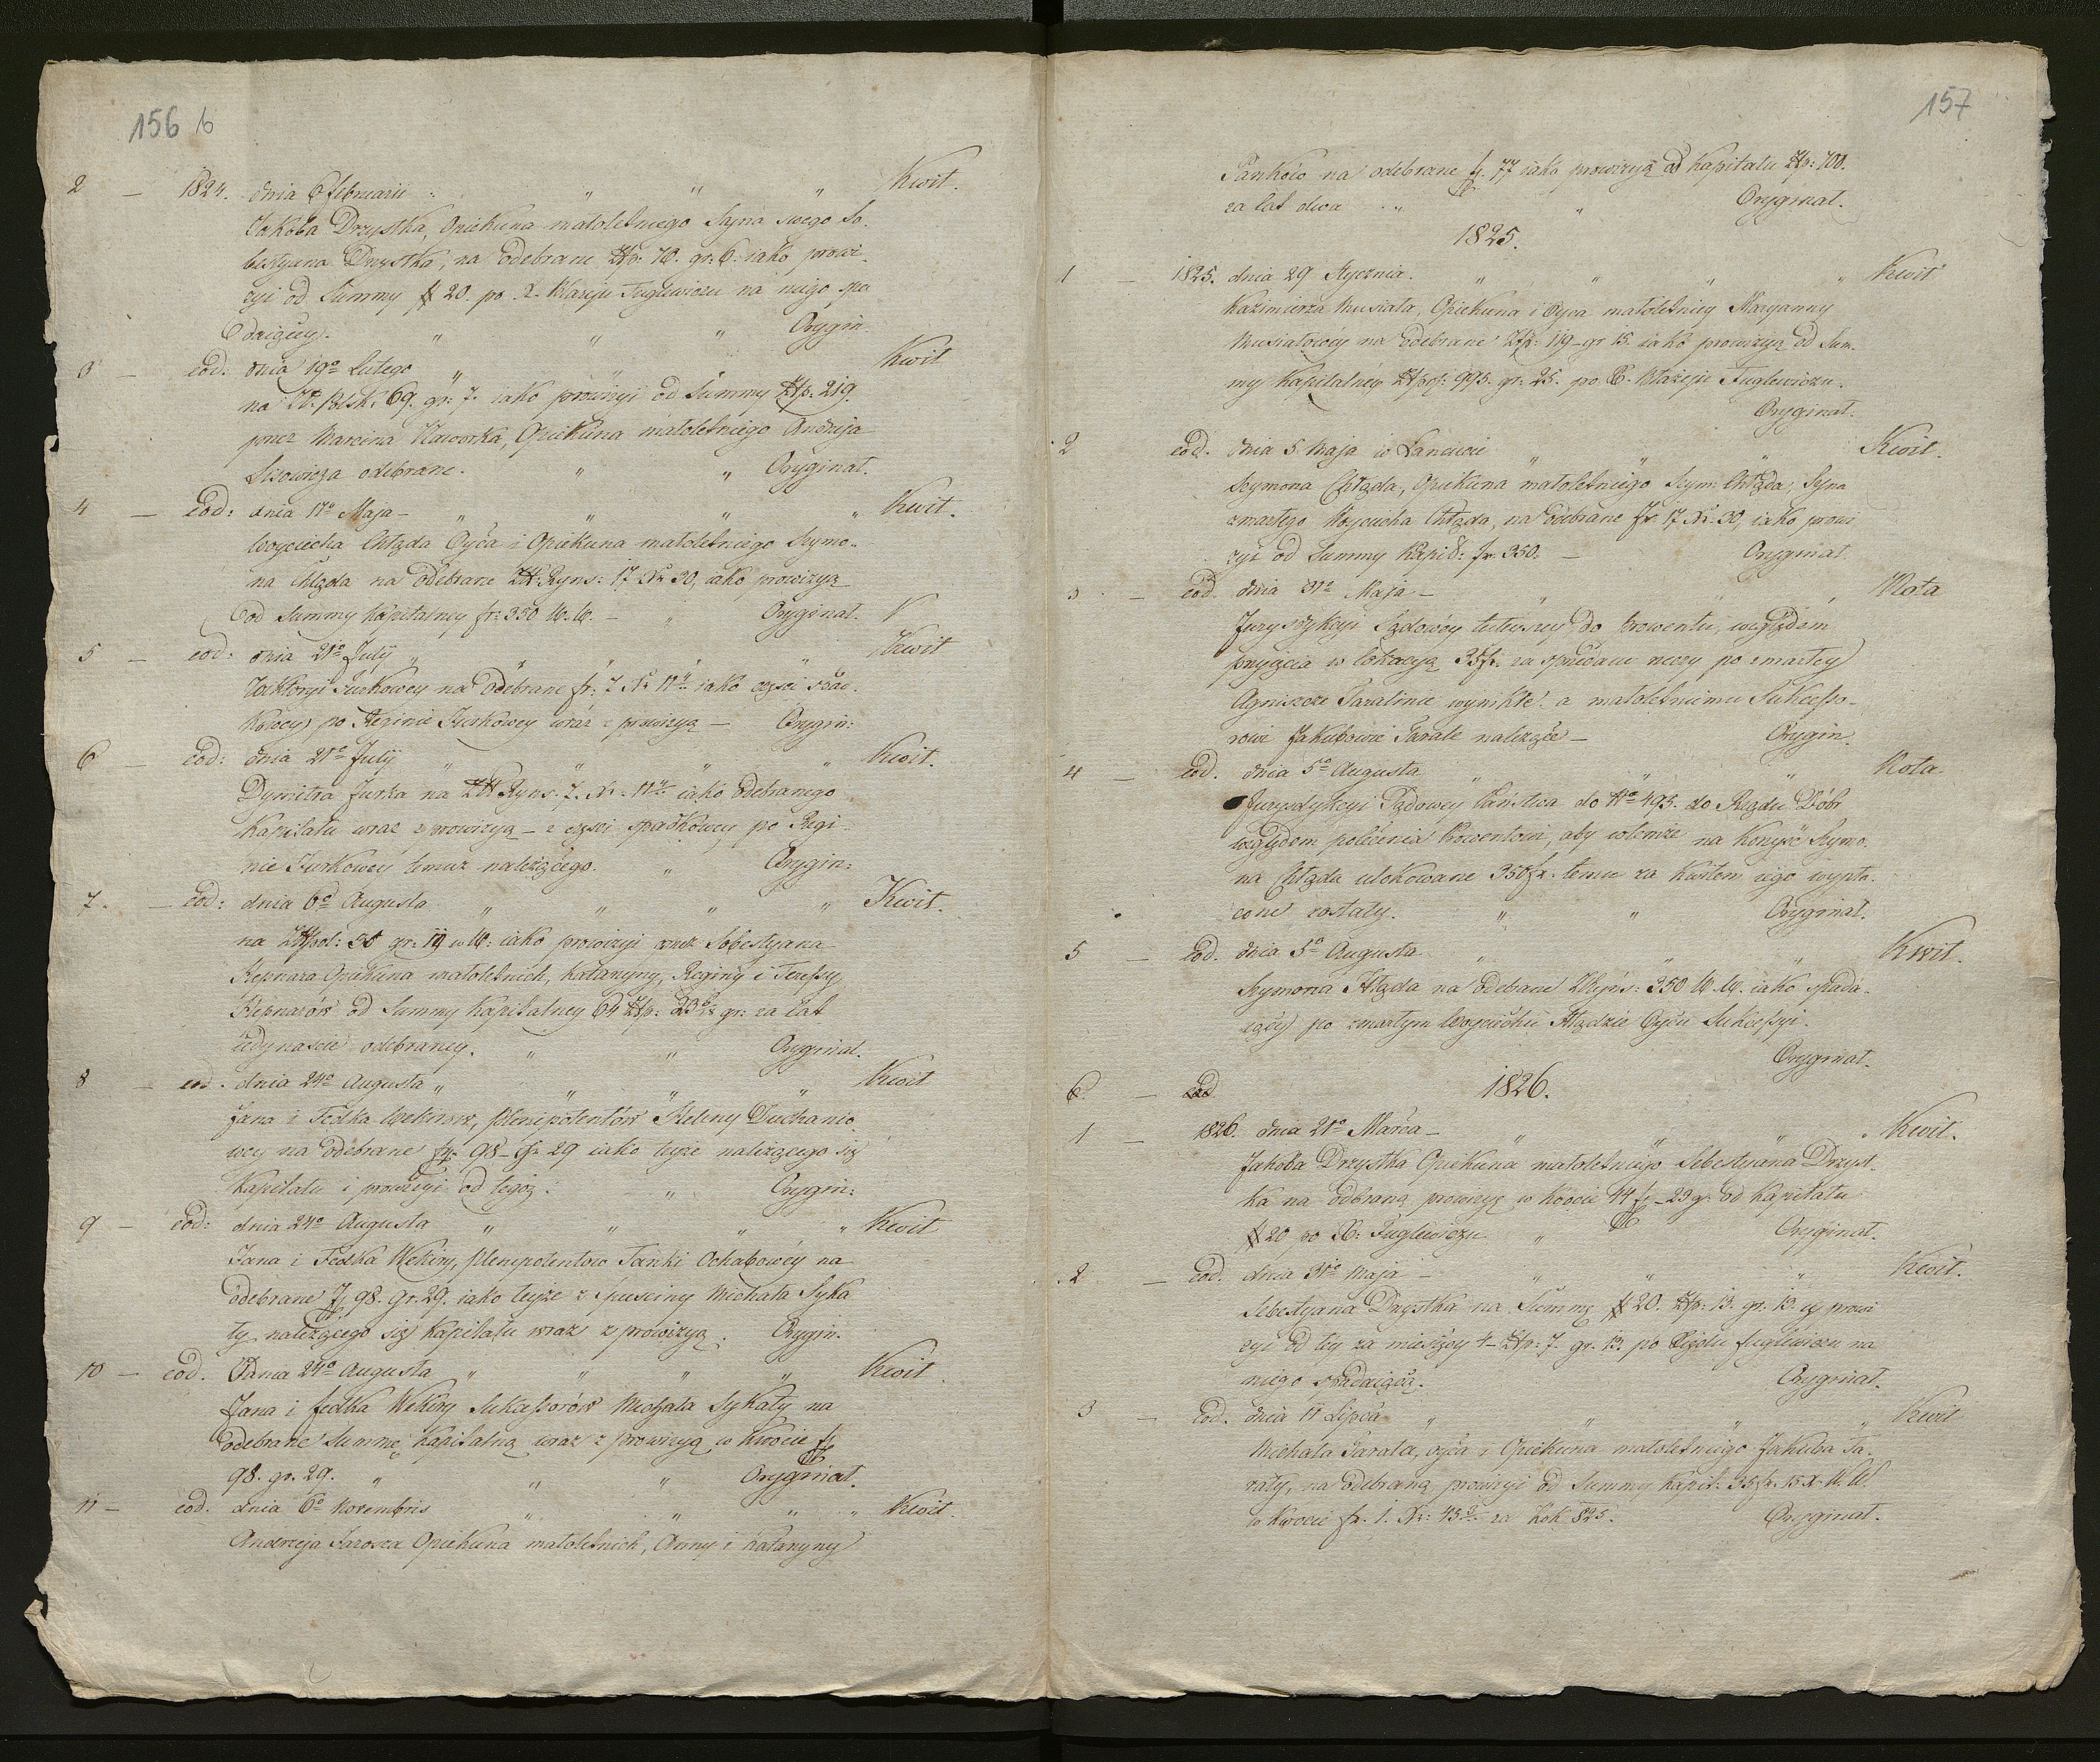 156 b
2 — 1824. dnia 6 februarii „ „ „ Kwit.
Jakóba Drzystka, Opiekuna małoletniego Syna swego Se-
bestyana Drzystka, na odebrane Złp: 70. gr: 6. iako prowi-
zyi od Summy # 20. po X. Fuglewiczu na niego spa
daiącey. „ „ „ Orygin.
3 eod. dnia 19o Lutego „ „ Kwit
na Zł: Polsk: 69. gr: 7. iako prowizyi od Summy Złp: 219.
przez Marcina, Opiekuna małoletniego Andrzeja
odebrane. „ „ Oryginał.
4 — Eod: dnia 17o Maja — „ „ „ „ Kwit.
Woyciecha Chłąda Oyca i Opiekuna małoletniego Szymo-
na Chłąda na odebrane Zł: Ryns: 17 Xr 30, iako prowizyą
od Summy kapitalney fr: 350 W. W. — „ Oryginał.
5 — eod: dnia 21o July „ „ „ „ „ Kwit
Jurkowey na odebrane fr: 7 Xr 11 iako części spad-
kowey po Reginie Jurkowey wraz z prowizyą — Orygin:
6 — eod: dnia 21o July „ „ „ „ Kwit.
Dymitra Jurka na Zł Ryns. 7. Xr. 11 iako odebranego
kapitału wraz z prowizyą — z części spadkowey po Regi-
nie Jurkowey temuż należącego. „ Orygin:
7. — eod: dnia 6o Augusta „ „ „ „ Kwit.
na Złpol: 38 gr: 19 w W: iako prowizyi przez Sobestyana
Kepnara Opiekuna małoletnich, Katarzyny, Reginy i Teressy
Kepnarów od Summy kapitalney 64 Złp: 23 gr: za lat
iedynaście odebraney. „ „ Oryginał.
8 — eod. dnia 24o Augusta „ „ „ „ Kwit
Jana i Fedka Wekirów, Plenipotentów Heleny Duchanio-
wey na odebrane fp: 98 — Gr 29 iako teyże należącego się
Kapitału i prowizyi od tegoż: „ Orygin:
9 — eod: dnia 24o Augusta „ „ „ „ Kwit
Jana i Fedka Wekiry, Plenipotentów Tanki Ochabowéy na
odebrane f 98. Gr. 29. iako teyże z Spuściny Michała Syka
ły należącego się Kapitału wraz z prowizyą. Orygin.
10 — eod. Dnia 24o Augusta „ „ „ „ Kwit.
Jana i Fedka Wekiry Sukcessorów Michała Sykały na
odebrane Summę kapitalną wraz z prowizyą w kwocie f
98. gr. 29. „ „ „ Oryginał.
11 — eod. dnia 6o Novembris „ „ „ „ Kwit.
Andrzeja Jarosza Opiekuna małoletnich, Anny i Katarzyny
157
Panków na odebrane f. 77 iako prowizyą od Kapitału Złp: 700.
za lat dwa „ „ Oryginał.
1825.
1 — 1825. dnia 29 Stycznia. „ „ „ „ Kwit
Kazimierza Musiała, Opiekuna i Oyca małoletniey Maryanny
Musiałowéy na odebrane Złp: 119 — gr 15. iako prowizyą od Sum-
my Kapitalnéy Złpol: 995. gr: 25. po X. Błażeju Fuglewiczu.
Oryginał.
2 eod. dnia 5 Maja w Łańcucie „ „ „ Kwit.
Szymona Chłąda, Opiekuna małoletniego Szym: Chłąda, Syna
zmarłego Woyciecha Chłąda, na odebrane fr 17 Xr: 30, iako prowi
zyi od Summy Kapit: fr. 350. — Oryginał.
3 — eod. dnia 31o Maja — „ „ „ Nota
Juryzdykcyi Sądowéy tuteyszey do Prowentu, względem
przyięcia w lokacyą 35fr. za sprzedane rzeczy po zmarłey
Agniszce Taralinie wynikłe: a małoletniemu Sukcesso-
rowi Jakubowi Tarale należące — Orygin.
4 — eod. dnia 5o Augusta „ „ „ Nota.
Juryzdykcyi Sądowey Państwa do No 493. do Rządu Dóbr
względem polecenia Prowentowi, aby w tenże na korzyść Szymo-
na Chłąda ulokowane 350fr. temu za kwitem iego wypła-
cone zostały. „ „ Oryginał.
5 — Eod. dnia 5o Augusta „ „ „ Kwit.
Szymona Chłąda na odebrane ZRyńs: 350 W. W. iako spada-
iącéy po zmarłym Woyciechu Chłądzie Oycu Sukcessyi.
Oryginał.
6 — eod 1826.
1 — 1826. dnia 21o Marca — „ „ „ Kwit.
Jakóba Drzystka Opiekuna małoletniego Sebestyana Drzyst-
ka na odbraną prowizyę w kwocie 44 f — 23 g: od kapitału
# 20 po X: Fuglewiczu „ Oryginał.
2 — Eod. dnia 31o Maja — „ „ „ Kwit.
Sebestyana Drzystka na Summę # 20. Złp: 13. gr. 13. prowi
zyi od tey za miesięcy 4 — Złp: 7. gr. 13. po Xiędzu Fuglewiczu na
niego spadaiącą. Oryginał.
3 — Eod. dnia 11 Lipca „ „ „ „ Kwit
Michała Tarala, oyca i Opiekuna małoletniego Jakuba Ta-
rały, na odebraną prowizyi od Summy Kapit: 35fr. 15 X. W. W.
w kwocie fr. 1. Xr: 45 za Rok 825. Oryginał.